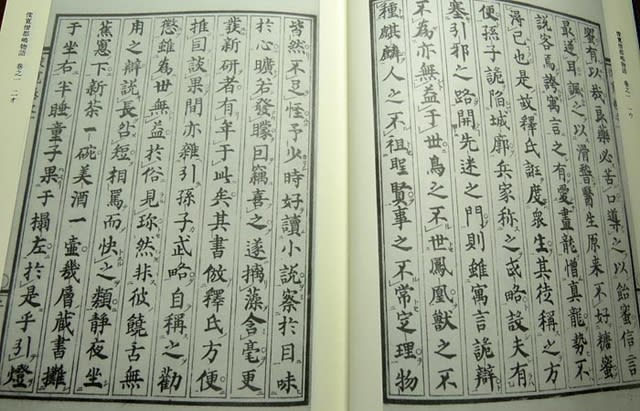 俊寛僧都嶋物語　巻之一　一ウ
實有以哉良藥必苦口導之以飴蜜信言
最逆耳諷之以滑稽醫生原来不好糖蜜
説客焉誇寓言之有愛畫龍憎真龍勢不
得已也是故釋氏誑度衆生其徒称之方
便孫子詭陷城廓兵家称之武略設夫有
塞引邪之路開先迷之門則雖寓言詭辯
不為亦無益于世鳥之不世鳳凰獣之不
種麒麟人之不祖聖賢事之不常定理物
俊寛僧都嶋物語　巻之一　二オ
皆然不足怪予少時好讀小説察於目味
於心曠若發矇囙竊喜之遂摛藻含毫更
發新研者有年于此矣其書倣釋氏方便
推囙談果間亦雜引孫子武略自称之勸
懲雖為世無益於俗見珎然非彼饒舌無
用之辯説長岀短相罵而快之類静夜坐
蕉窓下新茶一碗美酒一壷幾層蔵書攤
于坐右半睡童子果于榻左於是乎引燈